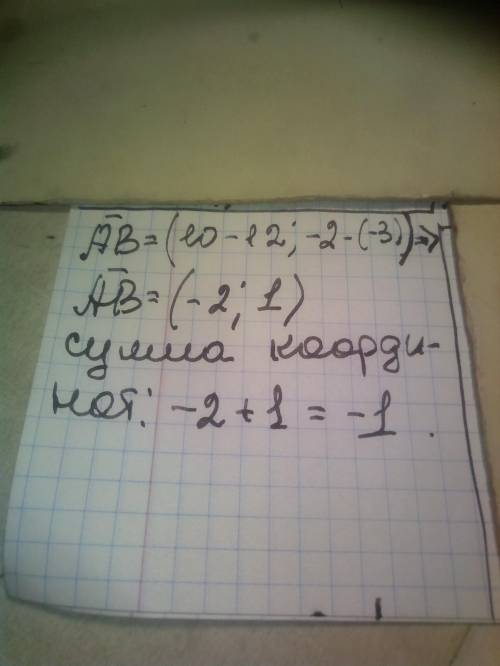 A̅B̅=(10-12; -2-(-3))⇒
A̅B̅=(-2; 1)
сумма коорди-
нат: -2+1=-1.